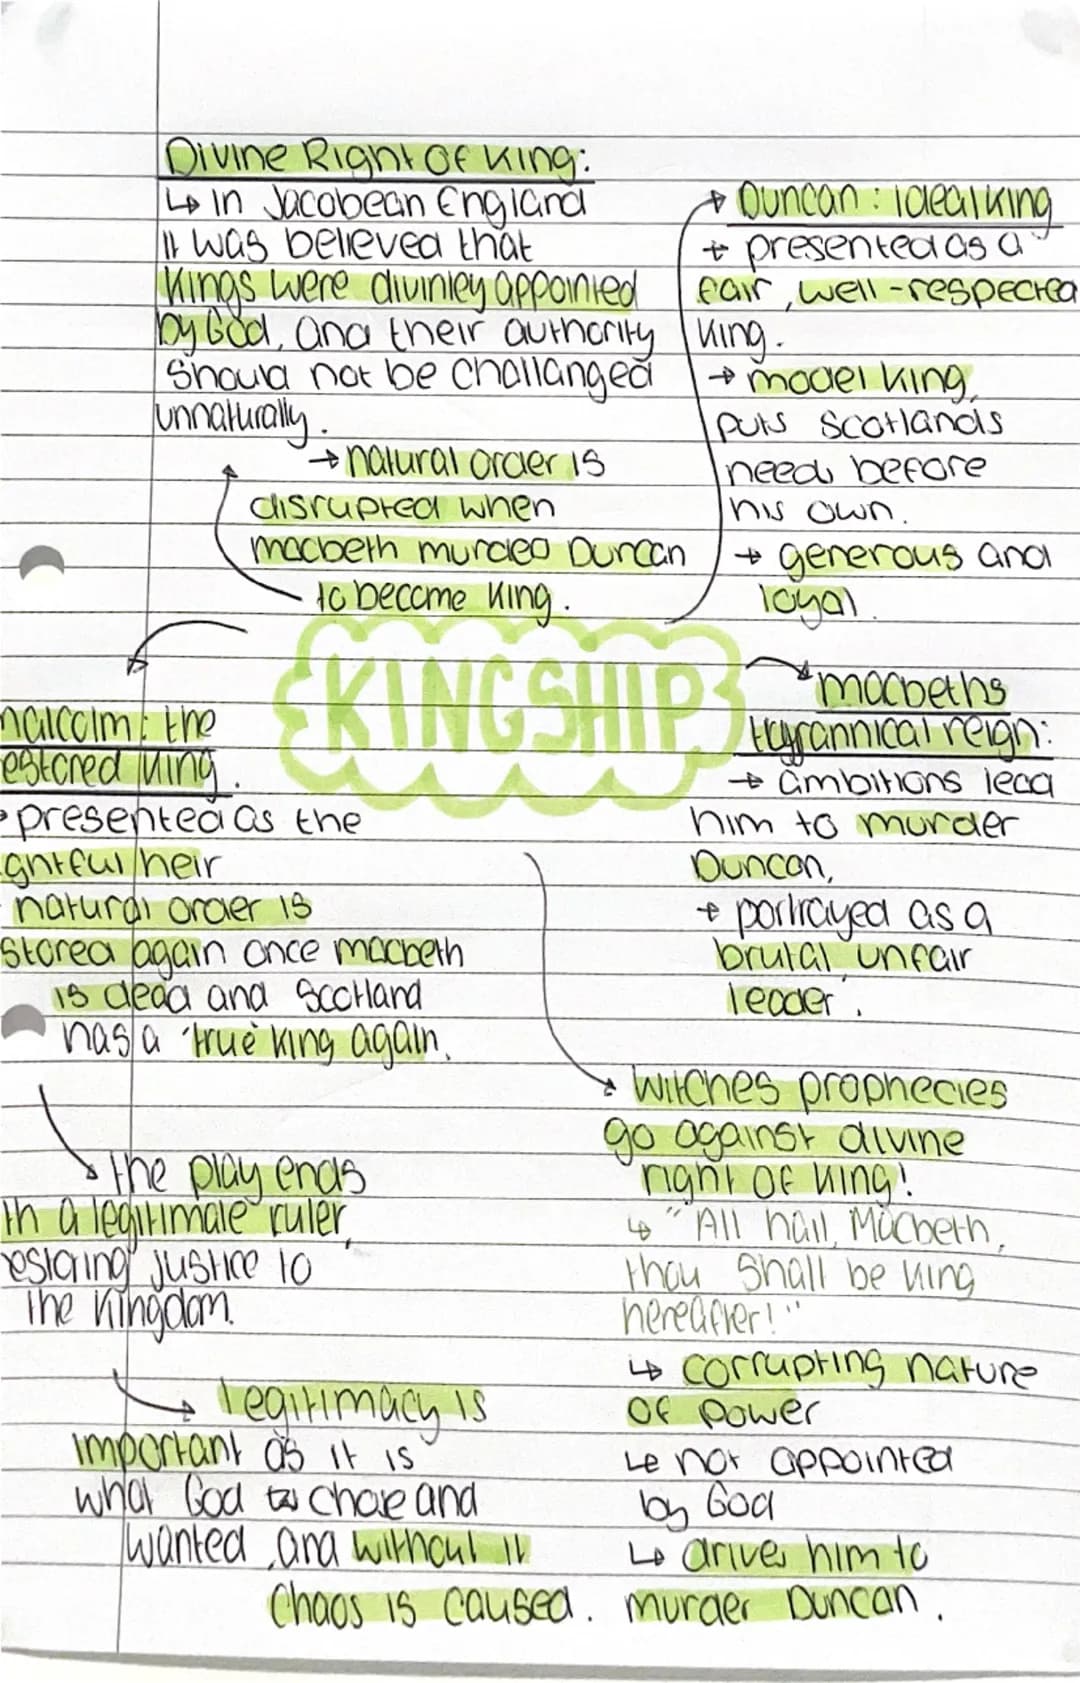 Divine Right Of King:
↳ In Jacobean England
it was believed that
Kings were divinley appointed
by God, and their authority
should not be challanged
unnaturally.
→ natural order is
disrupted when
macbeth murded Duncan
to become King.
→ Duncan : ideal king
→ presented as a
fair, well-respected
King.
→ model king,
puts Scotlands
needs before
his own.
→ generous and
loyal.
KINGSHIP
malcolm: the
estored King.
→ presented as the
ghtful heir
natural order is
stored again once macbeth
is dead and Scotland
has a 'true' king again.
→ the play ends
ith a legitimate ruler,
restoring justice to
the Kingdom.
→ legitimacy is
important as it is
what God chose and
wanted, and without it
Chaos is caused.
macbeths
tyrannical reign:
→ ambitions lead
him to murder
Duncan,
→ portrayed as a
brutal, unfair
leader.
→ witches prophecies
go against divine
right of King!
↳ "All hail, Macbeth,
thou shall be king
hereafter!"
↳ corrupting nature
of power
↳ not appointed
by God
↳ drives him to
murder Duncan.